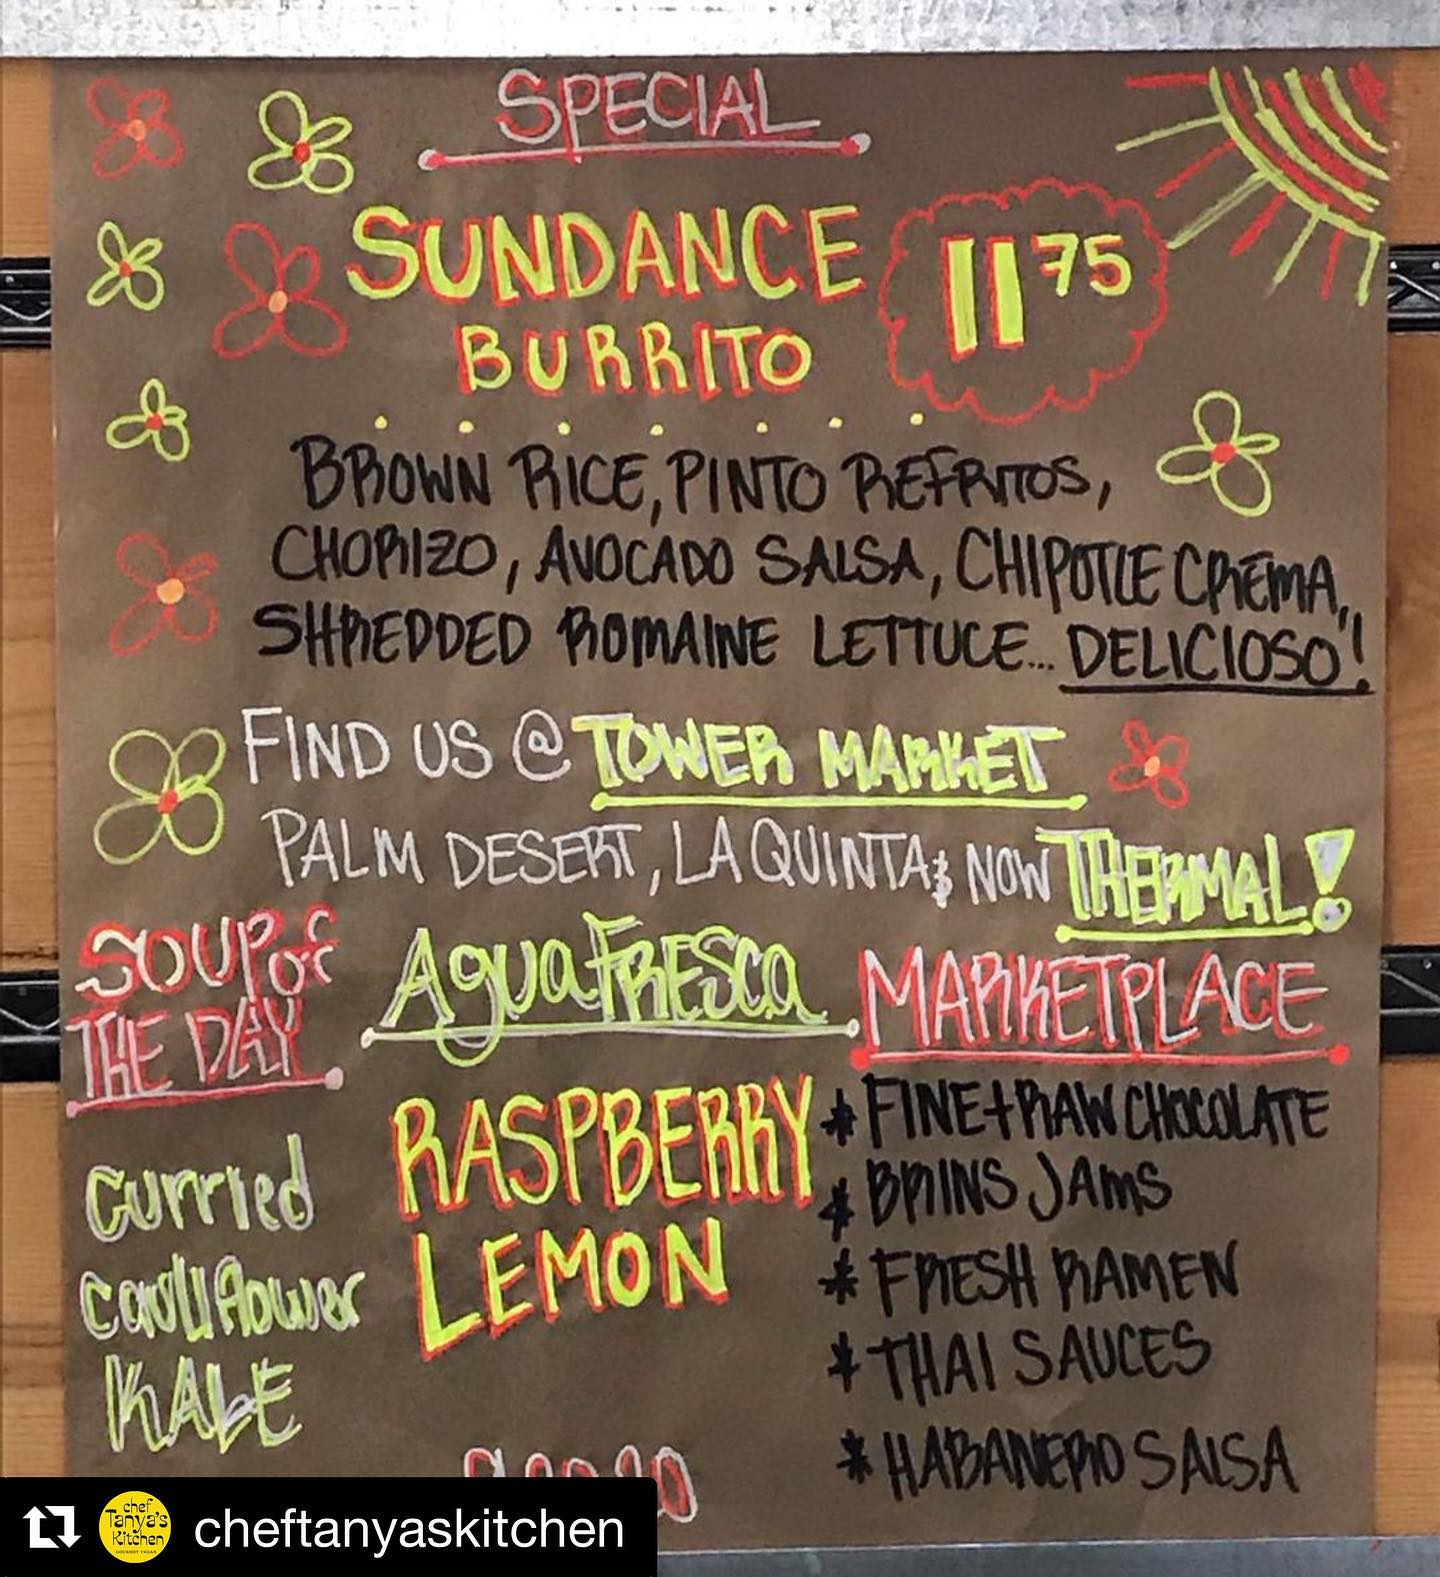 SPECIAL
SUNDANCE
BURRITO
11 75
BROWN RICE, PINTO REFRITOS,
CHORIZO, AVOCADO SALSA, CHIPOTLE CREMA,
SHREDDED ROMAINE LETTUCE... DELICIOSO!
FIND US @ TOWER MARKET
PALM DESERT, LA QUINTA & NOW THERMAL!
SOUP of
THE DAY
Curried
cauliflower
KALE
Agua FRESca
RASPBERRY
LEMON
MARKETPLACE
* FINE + RAW CHOCOLATE
* BRINS JAMS
* FRESH RAMEN
* THAI SAUCES
* HABANERO SALSA
chef
Tanya's
Kitchen
GOURMET VEGAN
cheftanyaskitchen